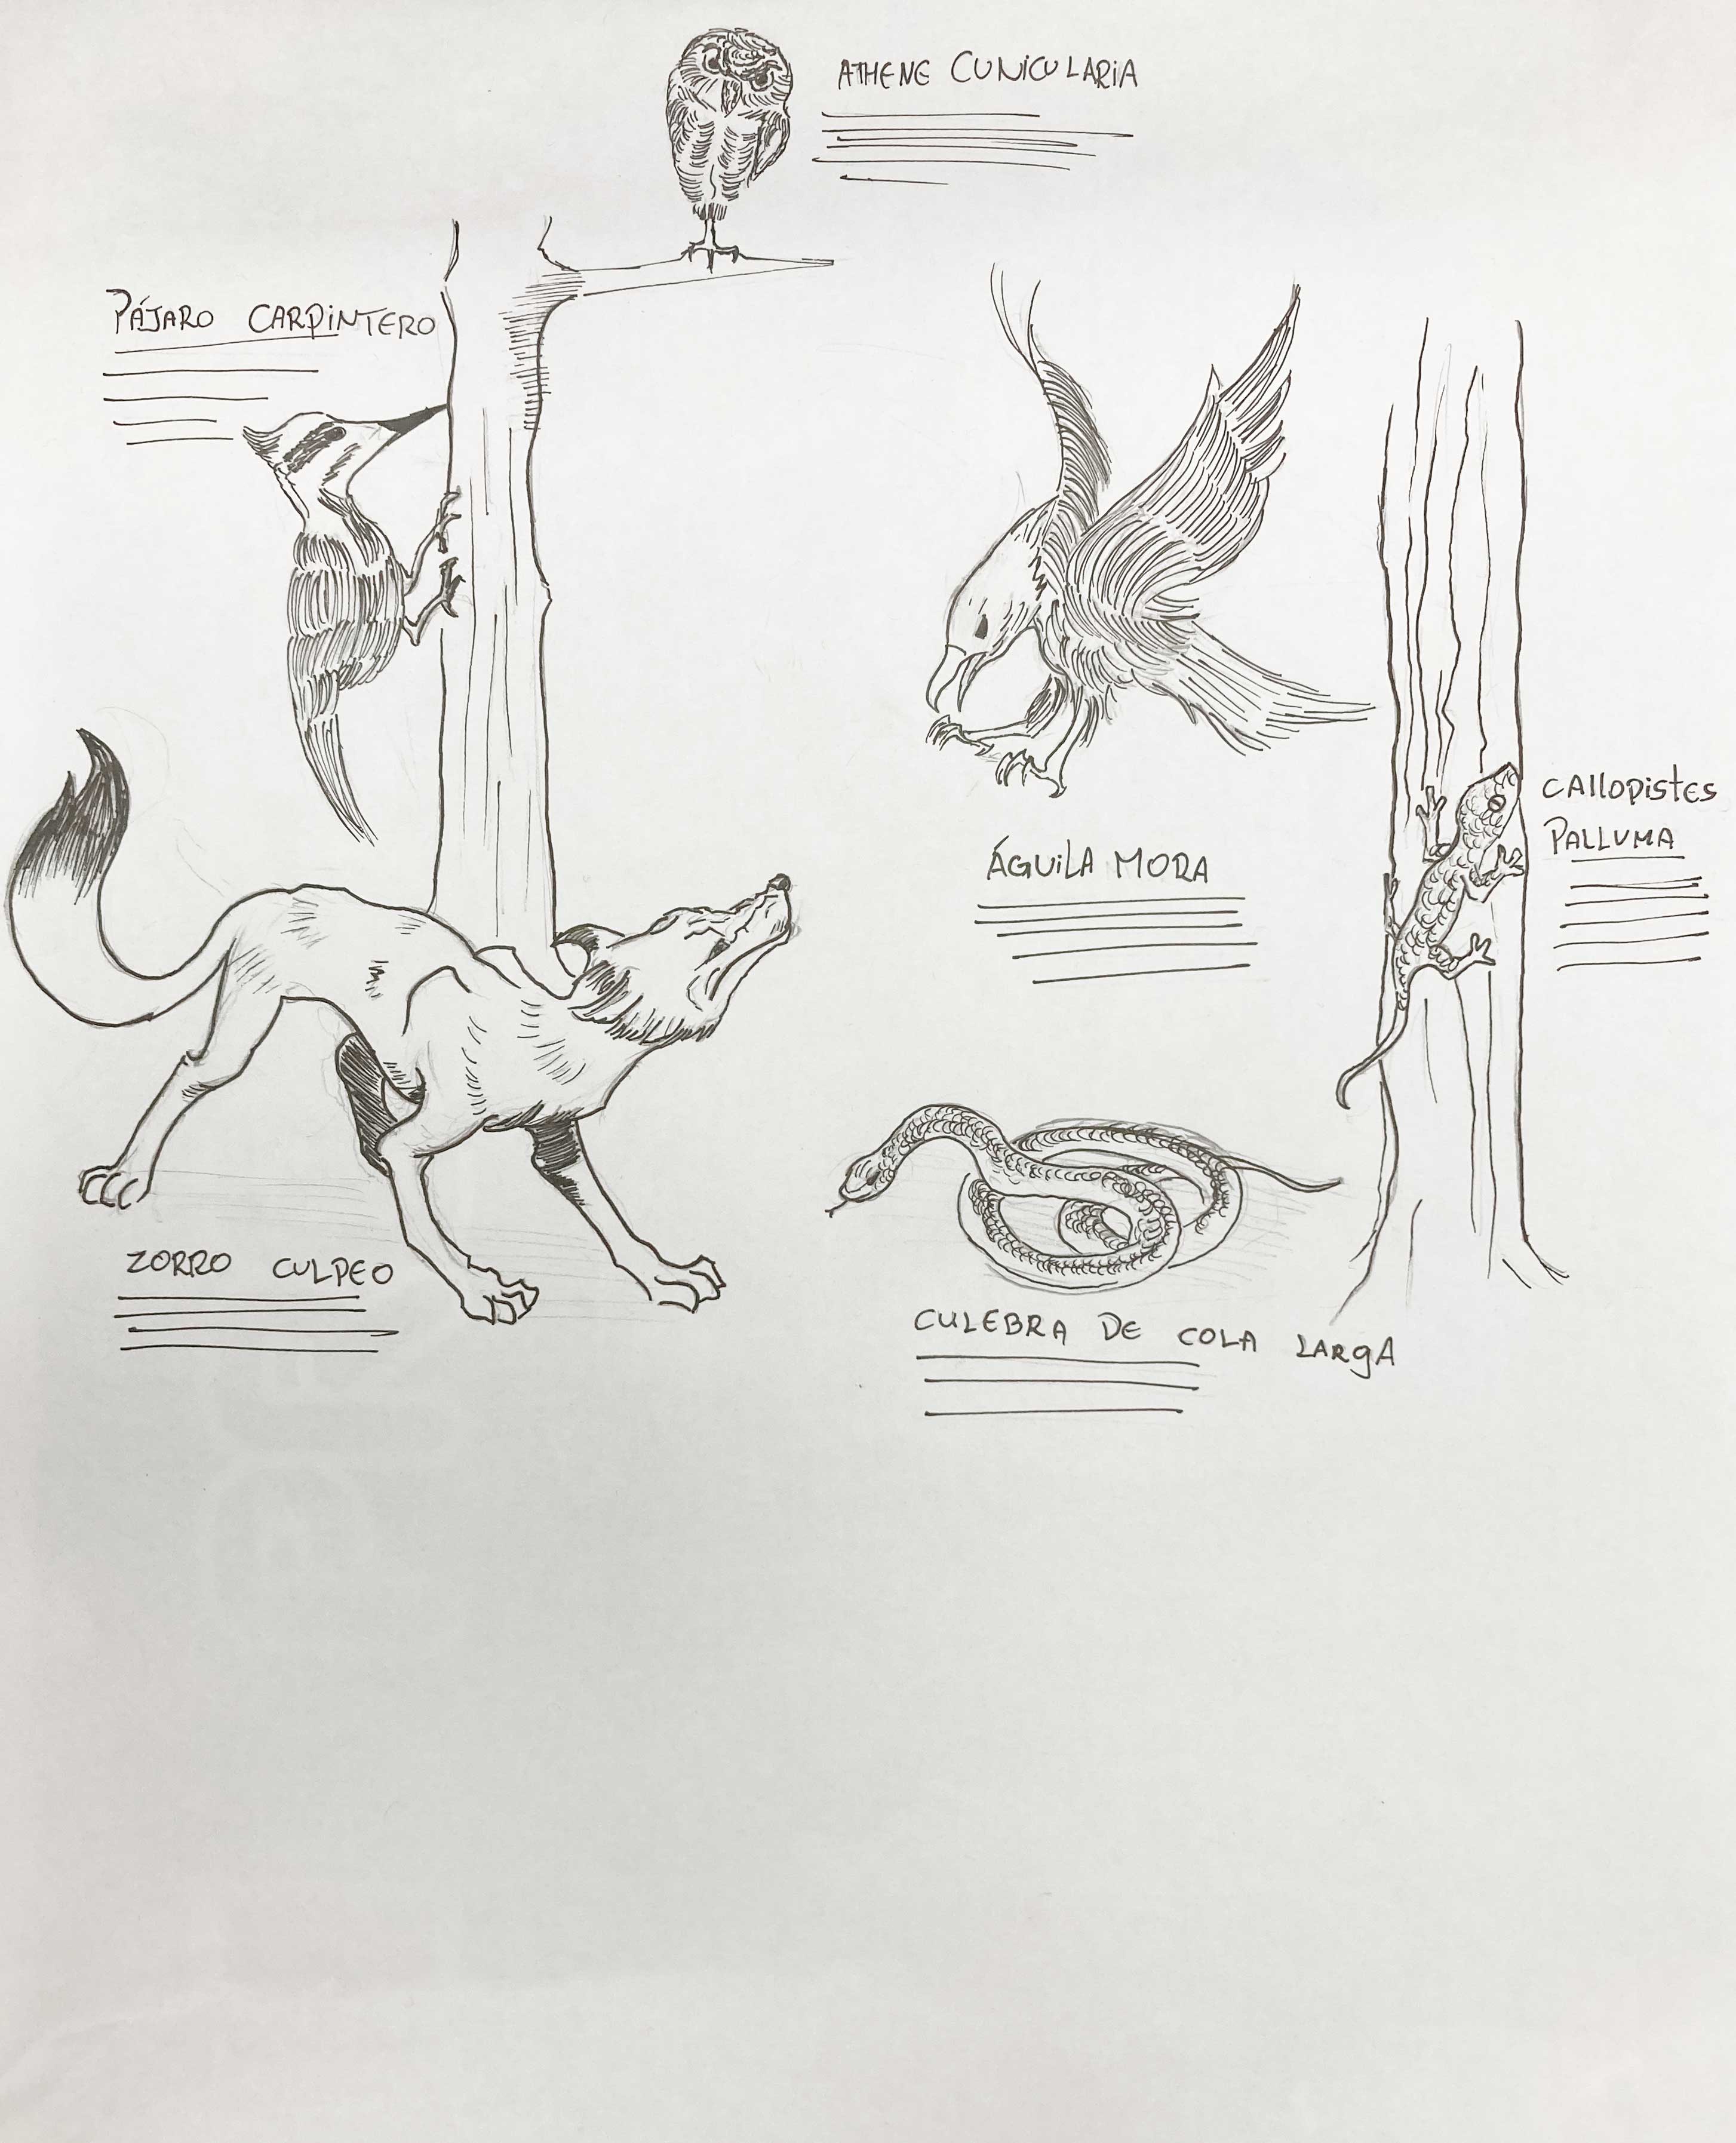 ATHENE CUNICULARIA
PÁJARO CARPINTERO
CAllOPistES
PALLUMA
ÁGUILA MORA
ZORRO CULPEO
CULEBRA DE COLA LARgA